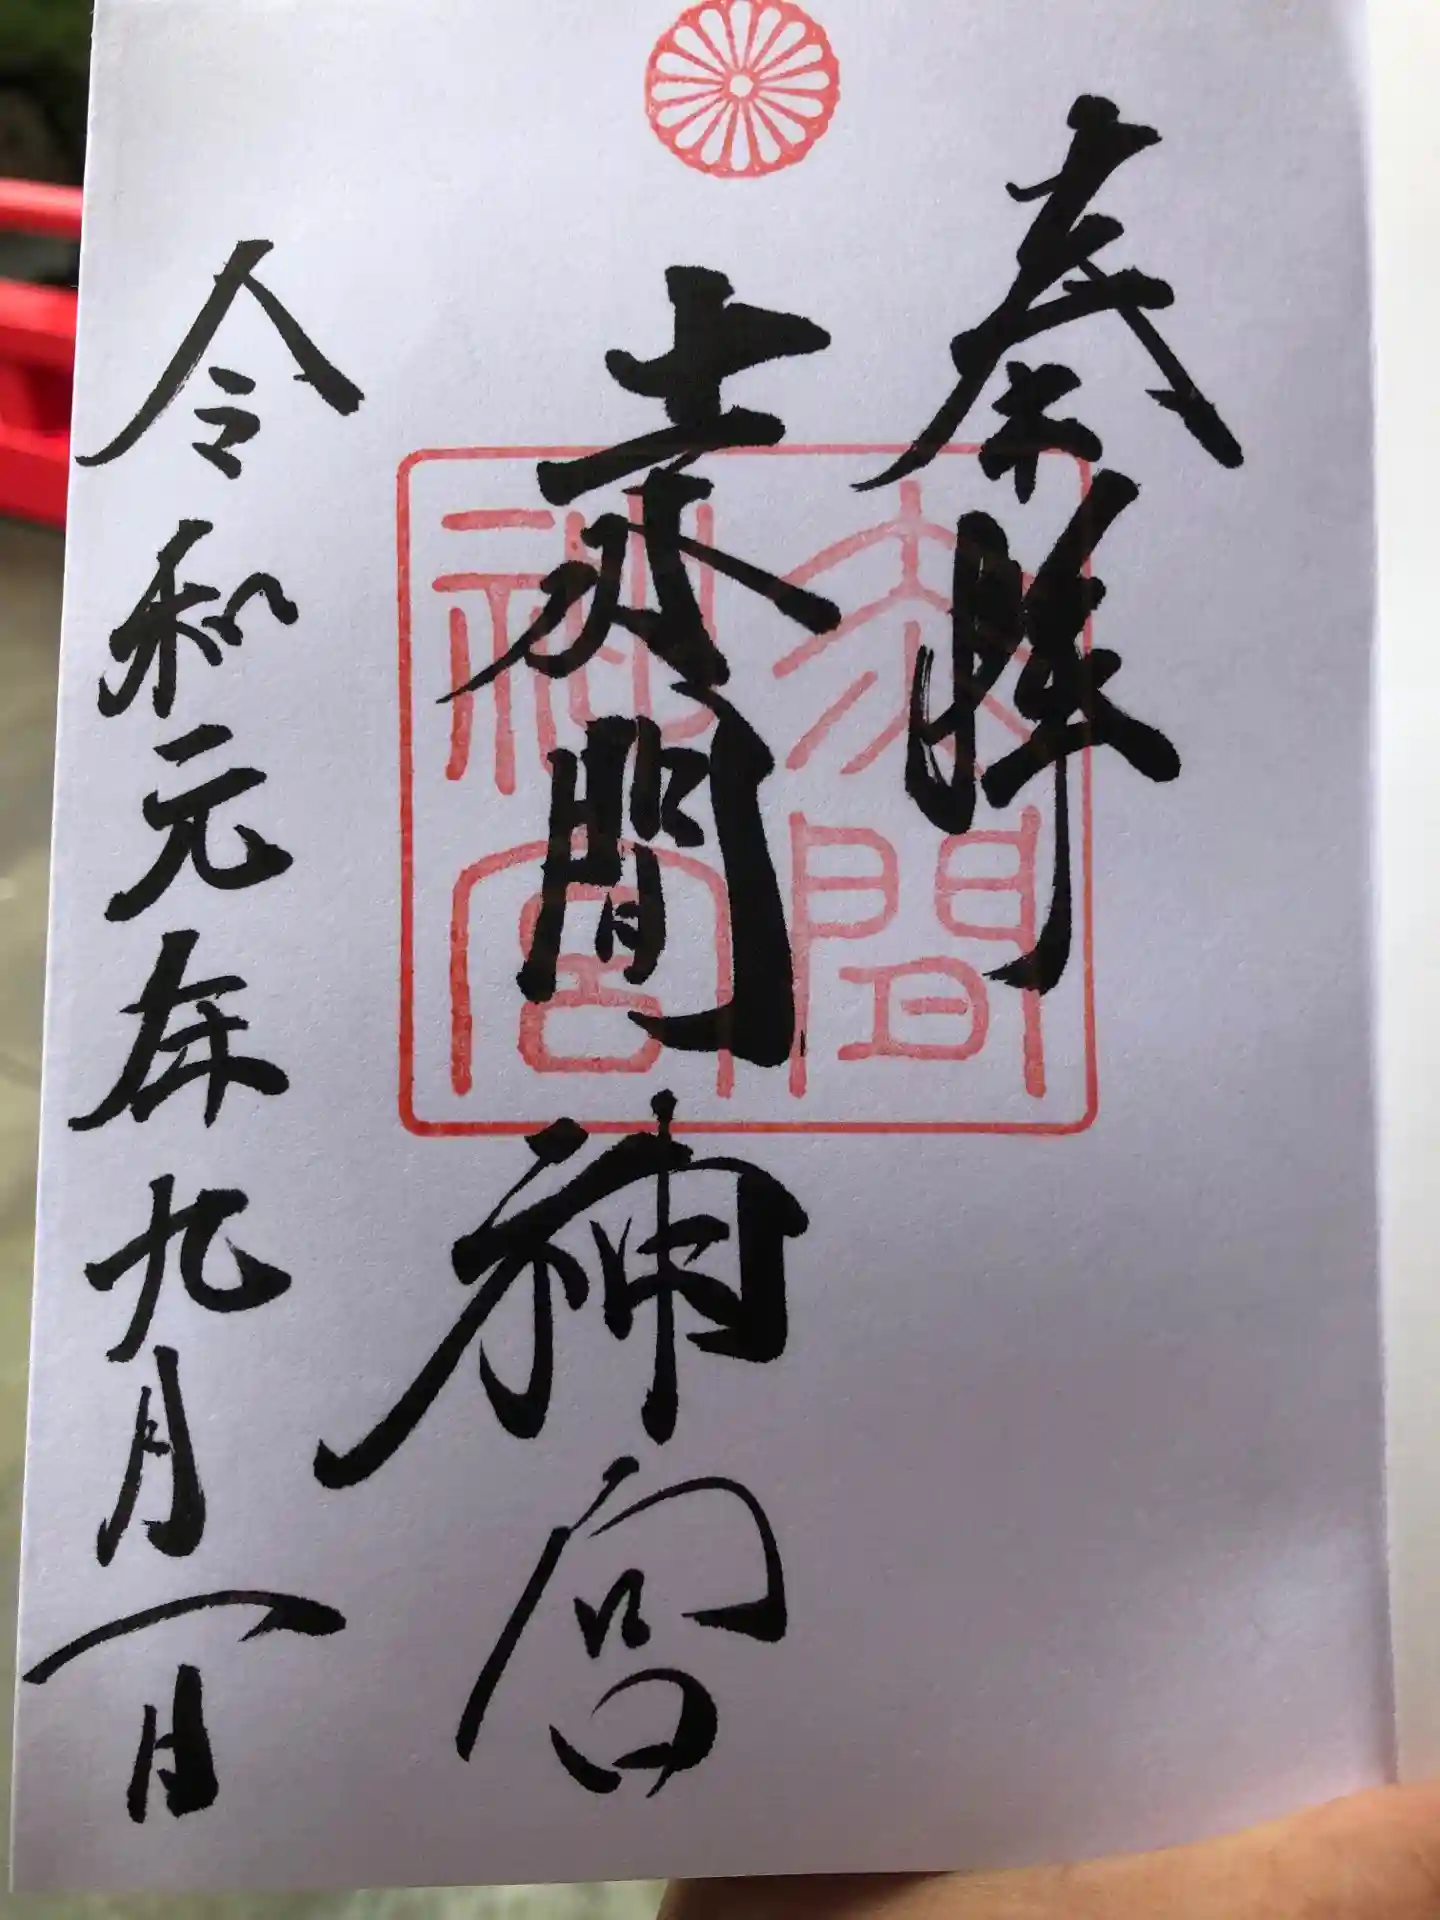 奉拝
赤間神宮
令和元年九月一日
赤間
神宮